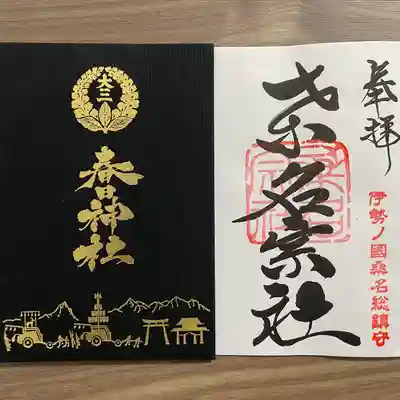 大三
春日神社
奉拝
桑名宗社
伊勢ノ國桑名総鎮守